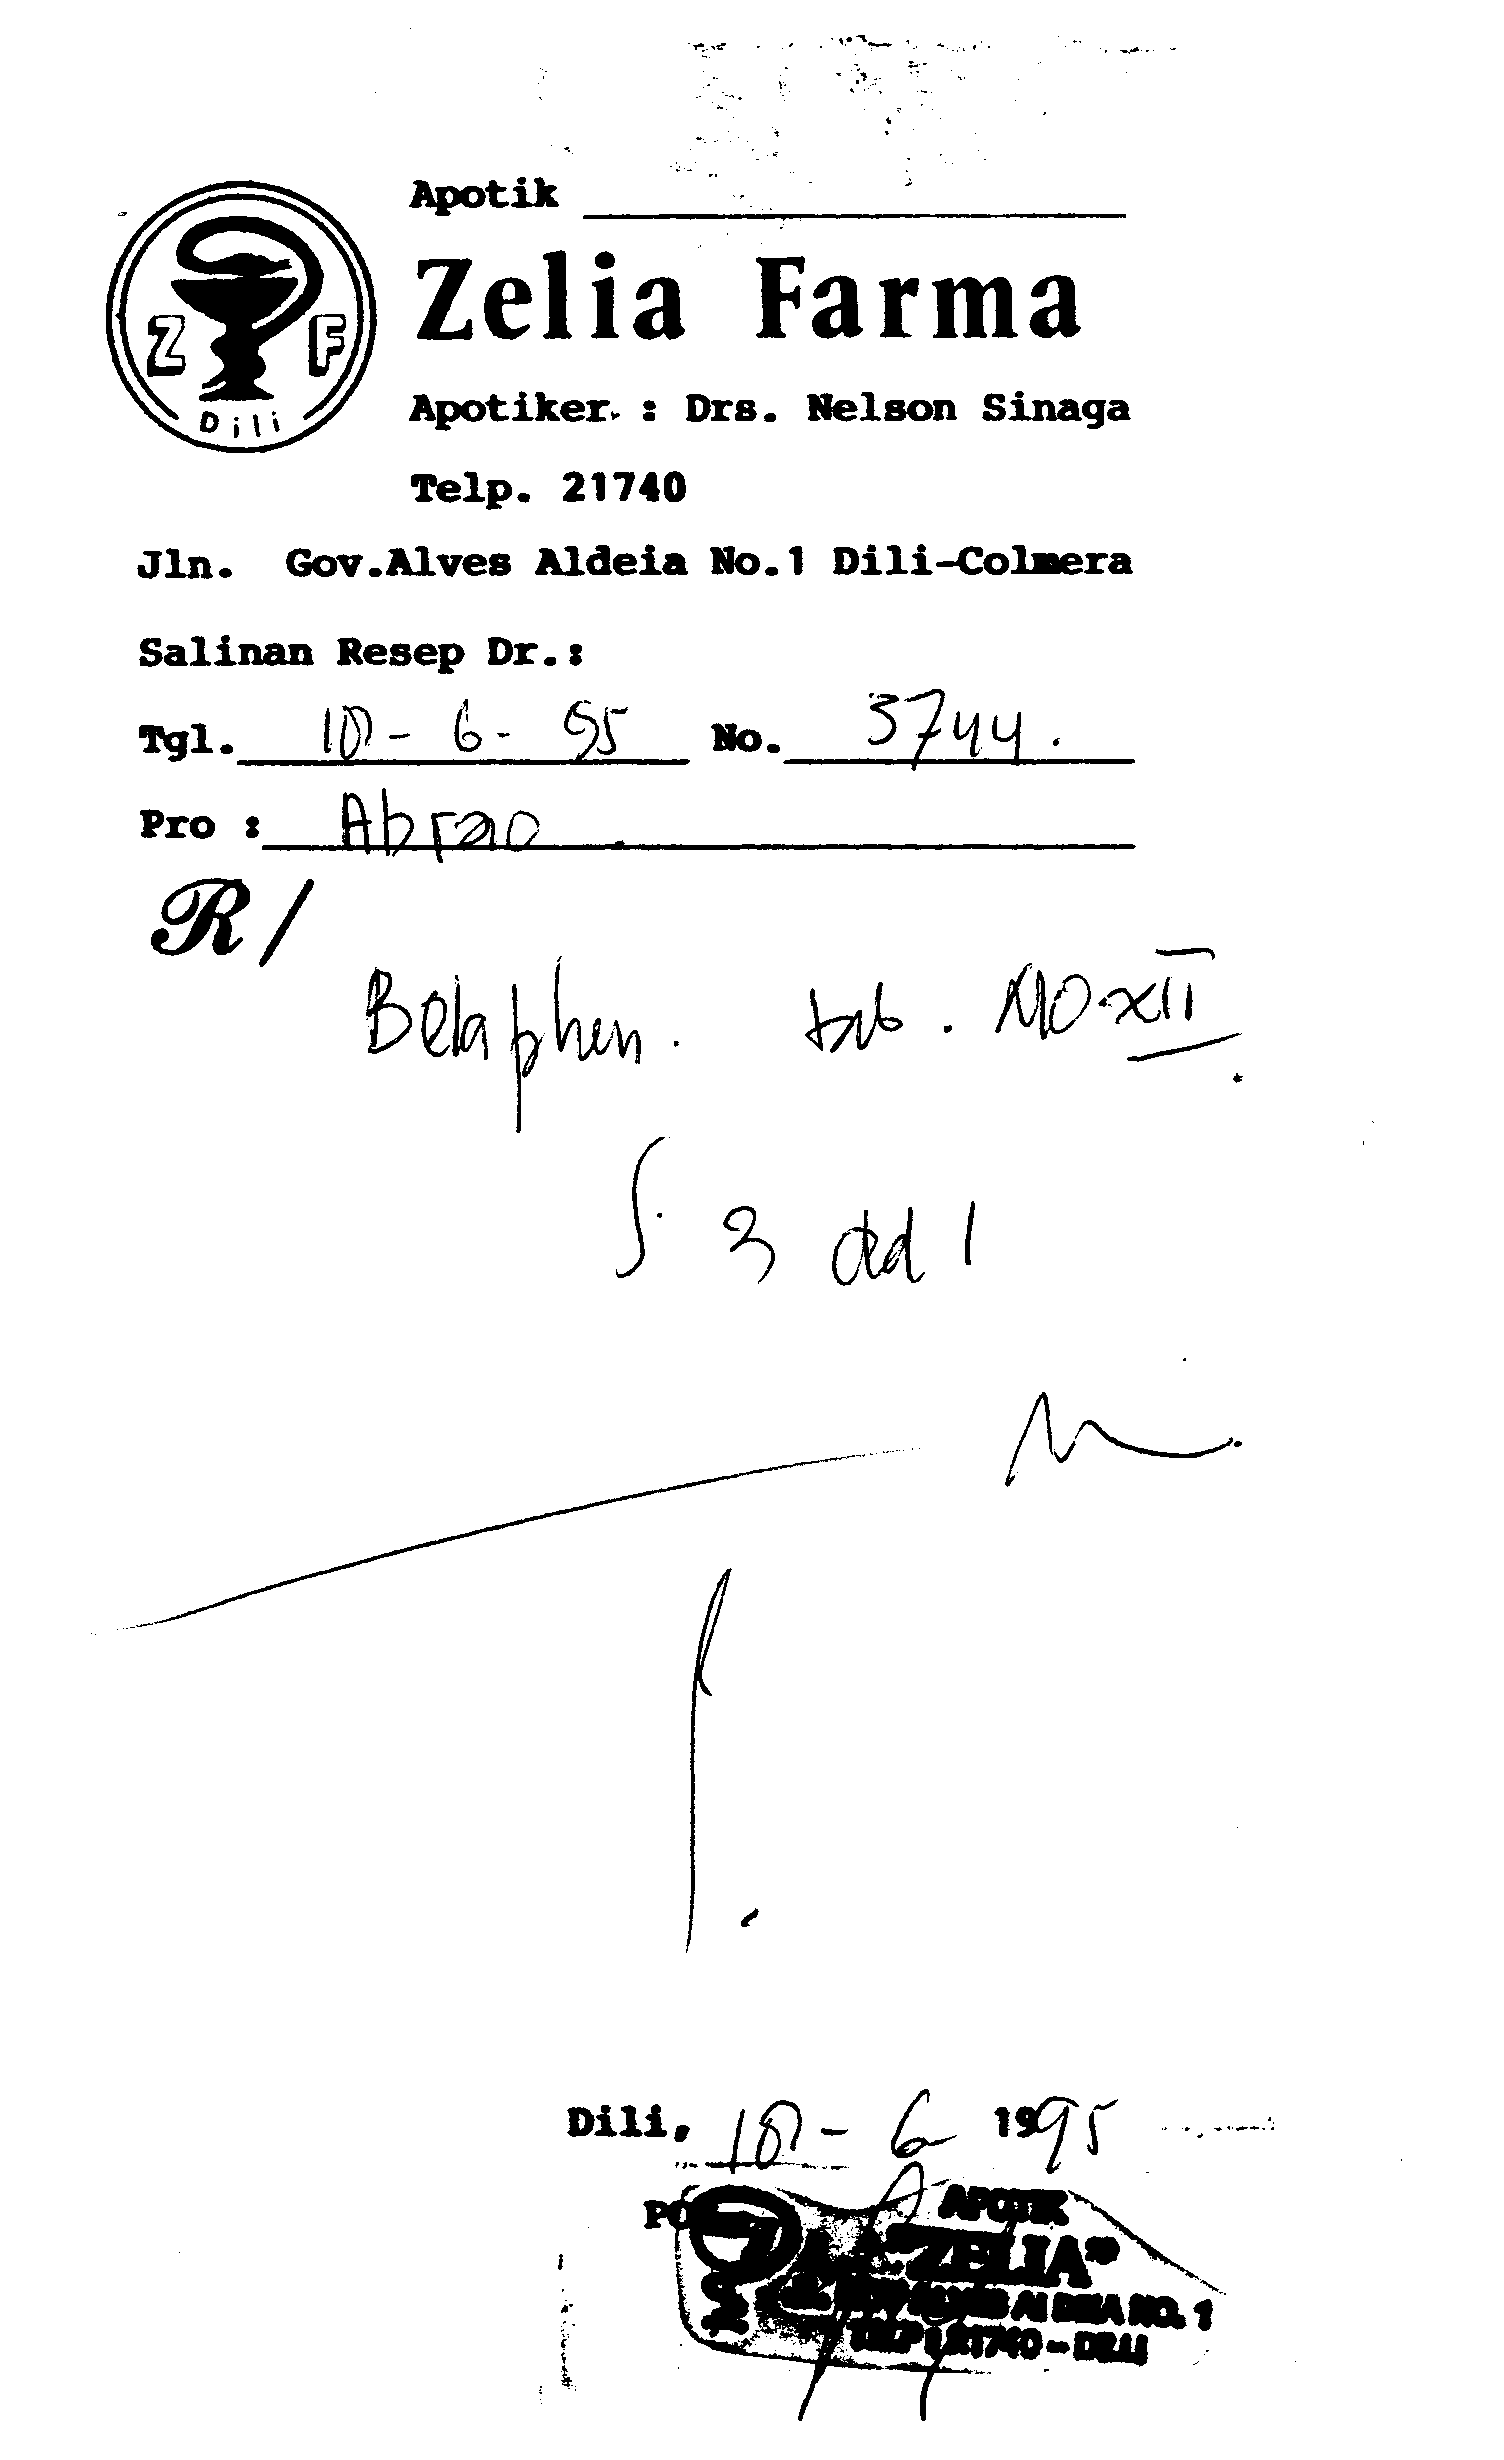 Apotik
Zelia Farma
Z F
Dili
Apotiker. : Drs. Nelson Sinaga
Telp. 21740
Jln. Gov.Alves Aldeia No.1 Dili-Colmera
Salinan Resep Dr.:
Tgl. 10 - 6 - 95 No. 3744.
Pro : Abrao
R/
Belaphen. tab. No. XII
S. 3 dd 1
Dili, 10 - 6 1995
APOTIK
"ZELIA"
NO. 1
TELP. 21740 - DILI